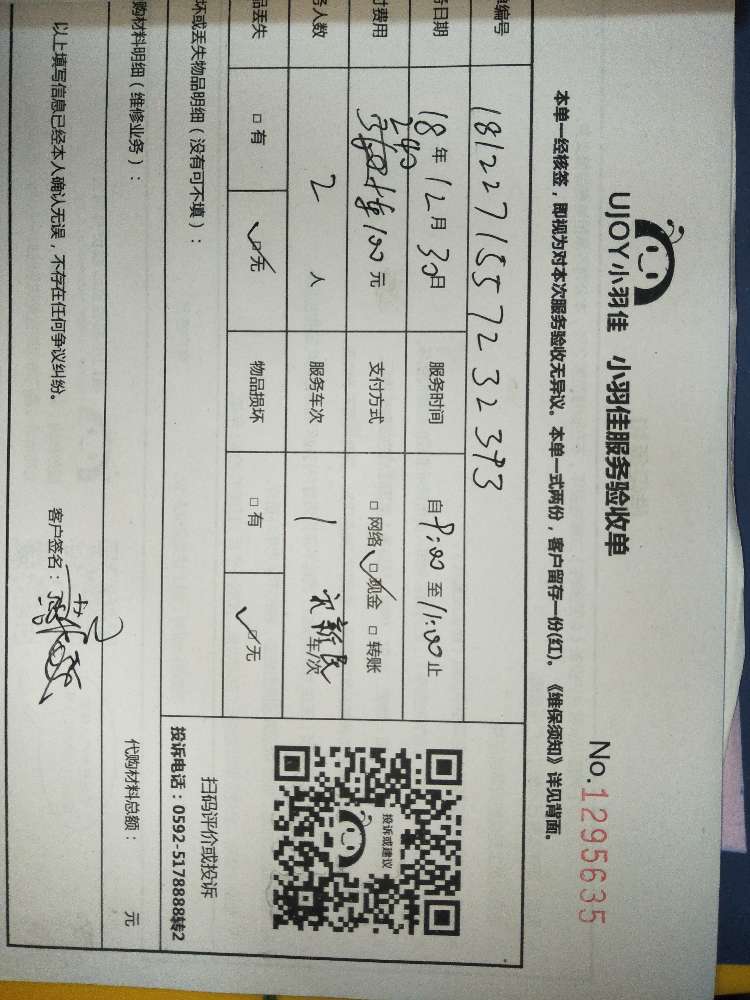 UJOY小羽佳 小羽佳服务验收单
No.1295635
本单一经核签，即视为对本次服务验收无异议。本单一式两份，客户留存一份(红)。《维保须知》详见背面。
单编号 181227155723233
日期 18年12月30日 服务时间 自9:00至11:00止
付费用 240 100元 支付方式 □网络 ☑现金 □转账
务人数 2人 服务车次 1 车/次
品丢失 □有 ☑无 物品损坏 □有 ☑无
坏或丢失物品明细（没有可不填）：
投诉或建议
扫码评价或投诉
投诉电话：0592-5178888转2
购材料明细（维修业务）：
代购材料总额： 元
以上填写信息已经本人确认无误，不存在任何争议纠纷。 客户签名：